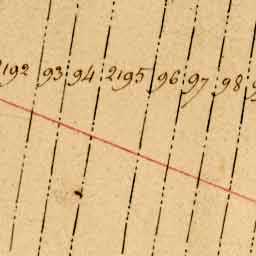 2192 93 94 2195 96 97 98